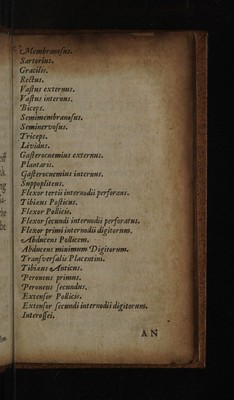 Membranoſus.
Sartorius.
Gracilis.
Rectus.
Vaſtus externus.
Vaſtus internus.
Biceps.
Semimembranoſus.
Seminervoſus.
Triceps.
Lividus.
Gaſterocnemius externus.
Plantaris.
Gaſterocnemius internus.
Suppopliteus.
Flexor tertii internodii perforans.
Tibieus Poſticus.
Flexor Pollicis.
Flexor ſecundi internodii perforatus.
Flexor primi internodii digitorum.
Abducens Pollicem.
Abducens minimum Digitorum.
Tranſverſalis Placentini.
Tibieus Anticus.
Peroneus primus.
Peroneus ſecundus.
Extenſor Pollicis.
Extenſor ſecundi internodii digitorum.
Interoſſei.
AN